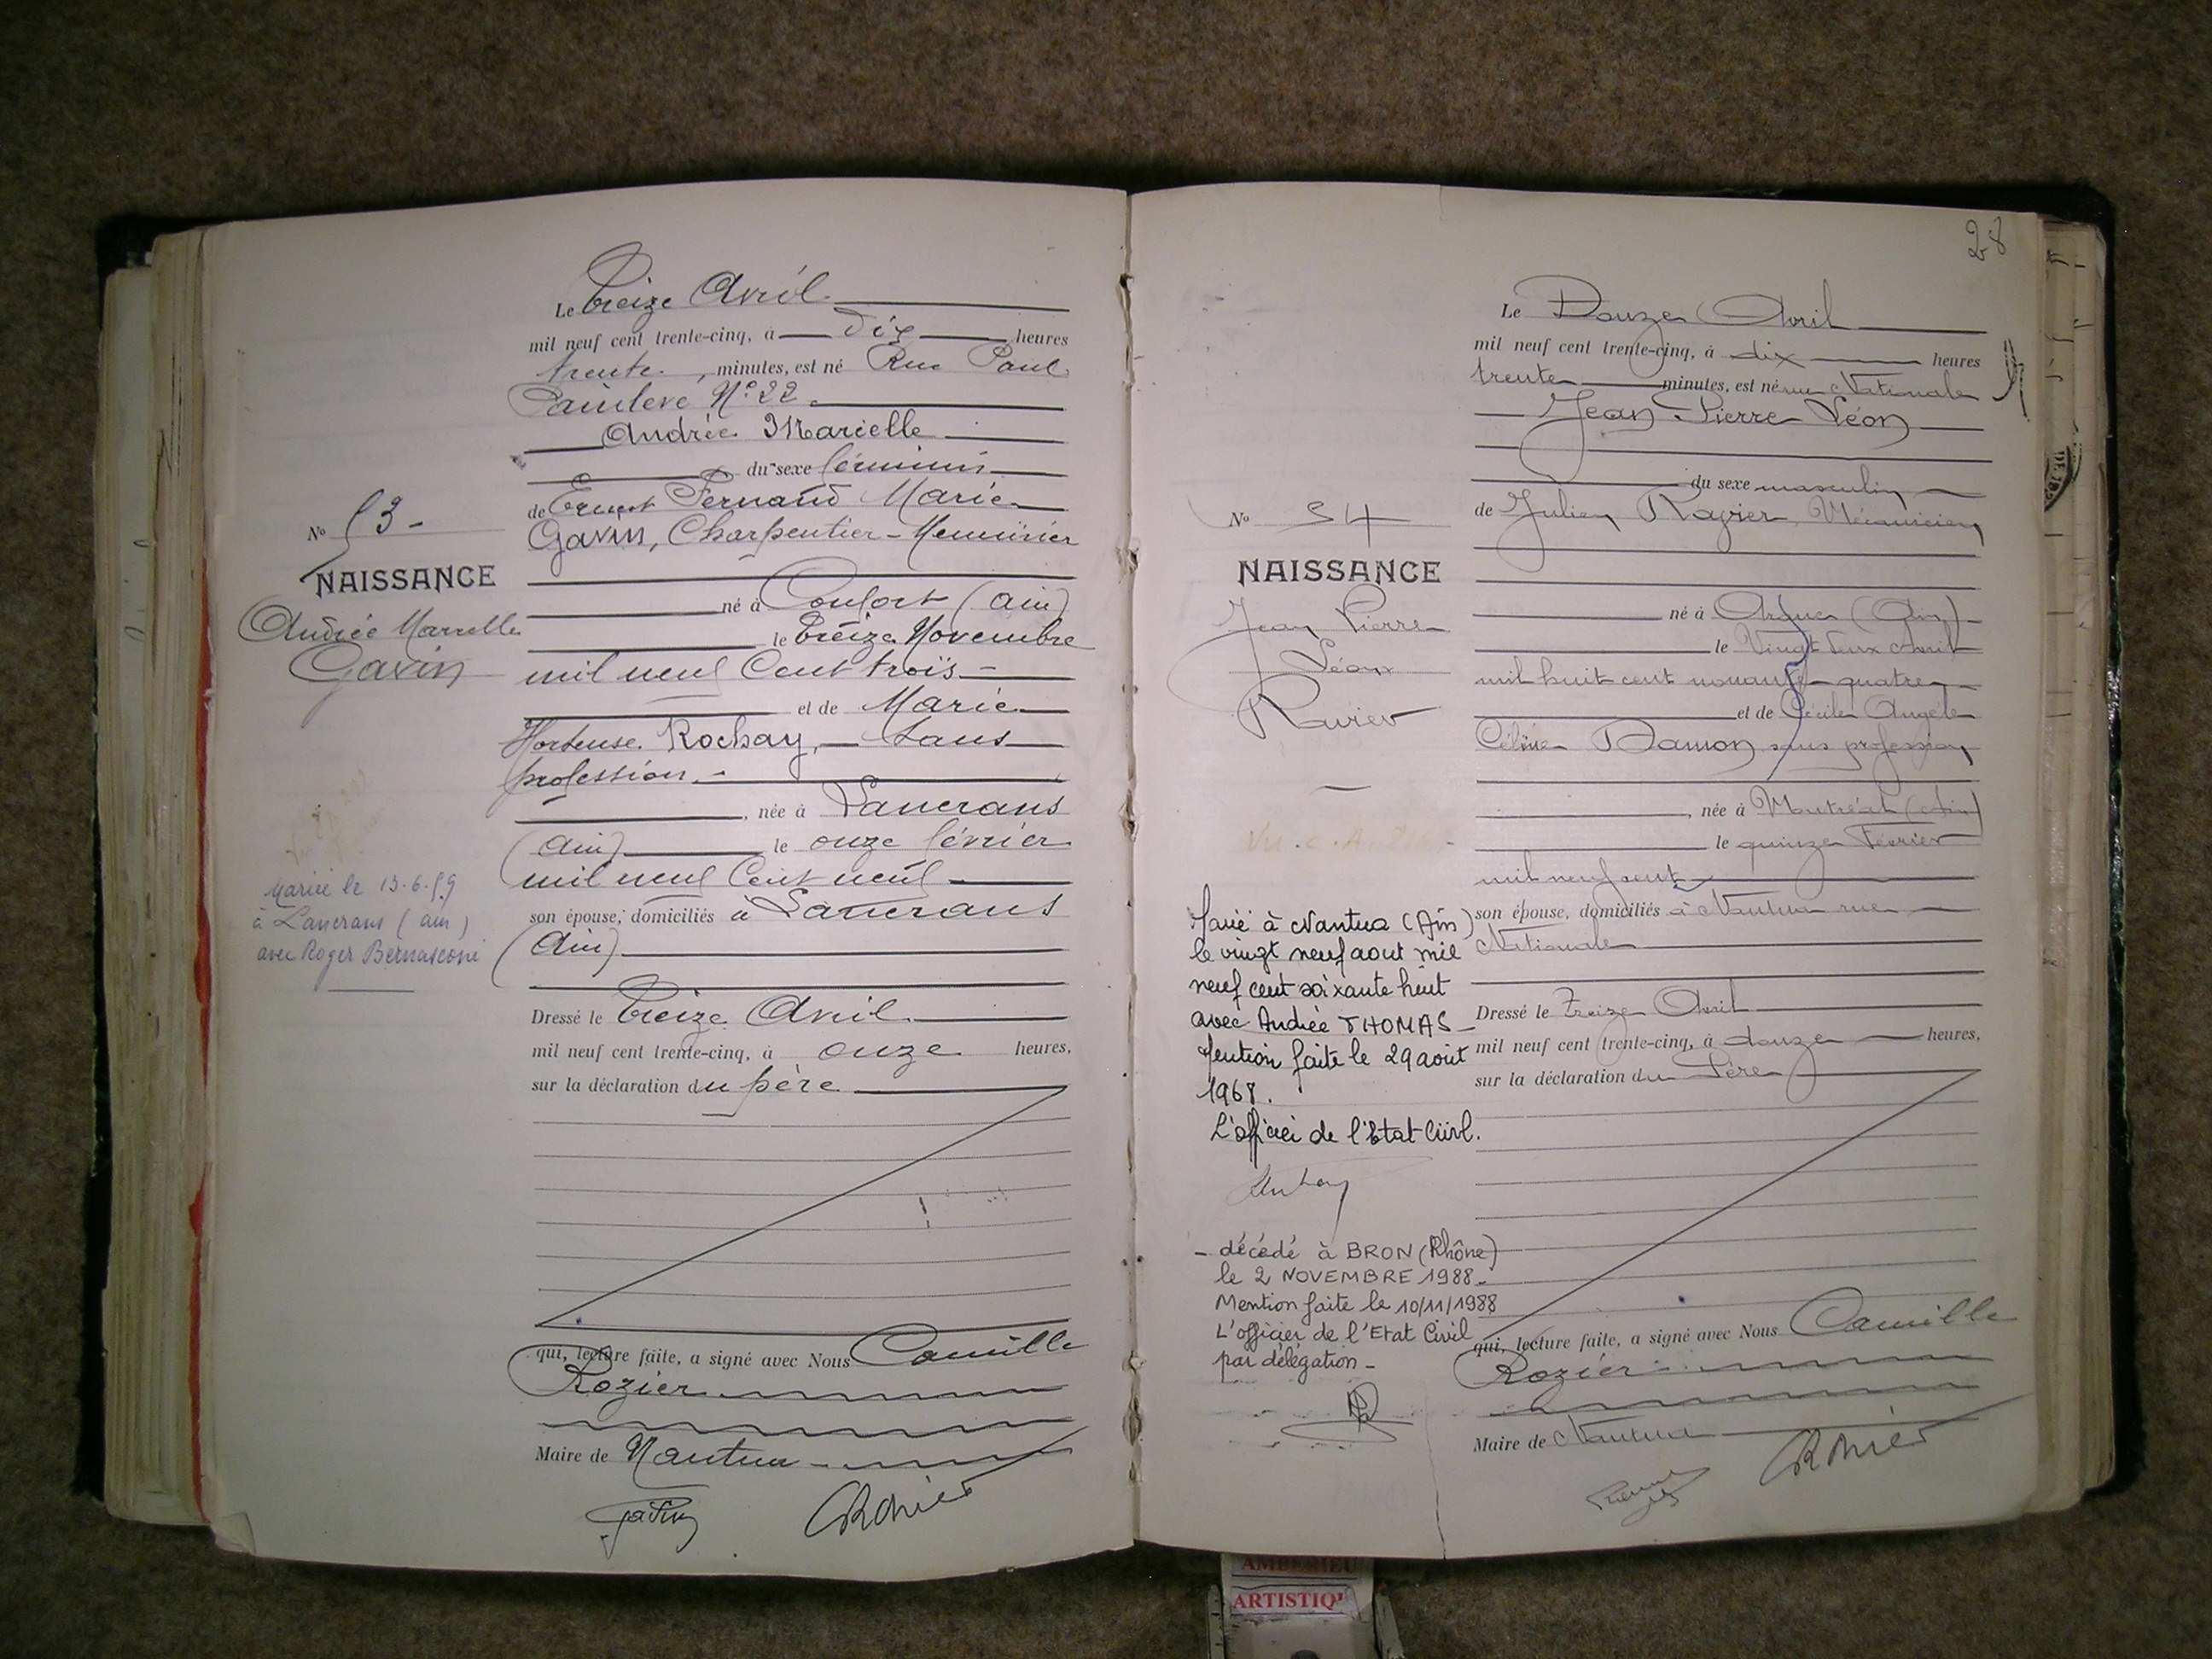 Le Treize Avril
mil neuf cent trente-cinq, à dix heures
trente, minutes, est né Rue Paul
Painlevé N° 22
Andrée Marcelle
du sexe féminin
de Ernest Fernand Marie
Gavin, Charpentier-Menuisier
né à Confort (Ain)
le treize Novembre
mil neuf Cent trois
et de Marie
Hortense Rochay, sans
profession.
, née à Lancrans
(Ain) le onze février
mil neuf Cent neuf
son épouse, domiciliés à Lancrans
(Ain)
Dressé le Treize Avril
mil neuf cent trente-cinq, à onze heures,
sur la déclaration du père
qui, lecture faite, a signé avec Nous Camille
Rozier
Maire de Nantua
Gavin
CRozier
No 53-
NAISSANCE
Andrée Marcelle
Gavin
Mariée le 13.6.59
à Lancrans (Ain)
avec Roger Bernasconi
28
Le Douze Avril
mil neuf cent trente-cinq, à dix heures
trente minutes, est né rue Nationale
Jean Pierre Léon
du sexe masculin
de Julien Ravier, Mécanicien
né à (Ain)
le Vingt deux Avril
mil huit cent nonante-quatre
et de Cécile Angèle
Céline Damon sans profession
, née à Montréal (Ain)
le quinze Février
mil neuf cent
son épouse, domiciliés à Nantua rue
Nationale
Dressé le Treize Avril
mil neuf cent trente-cinq, à douze heures,
sur la déclaration du Père
qui, lecture faite, a signé avec Nous Camille
Rozier
Maire de Nantua
CRozier
No 54
NAISSANCE
Jean Pierre
Léon
Ravier
Marié à Nantua (Ain)
le vingt neuf aout mil
neuf cent soixante huit
avec Andrée THOMAS
Mention faite le 29 août
1968.
L'officier de l'Etat Civil.
- décédé à BRON (Rhône)
le 2 NOVEMBRE 1988-
Mention faite le 10/11/1988
L'officier de l'Etat Civil
par délégation-
AMBERIEU
ARTISTIQ